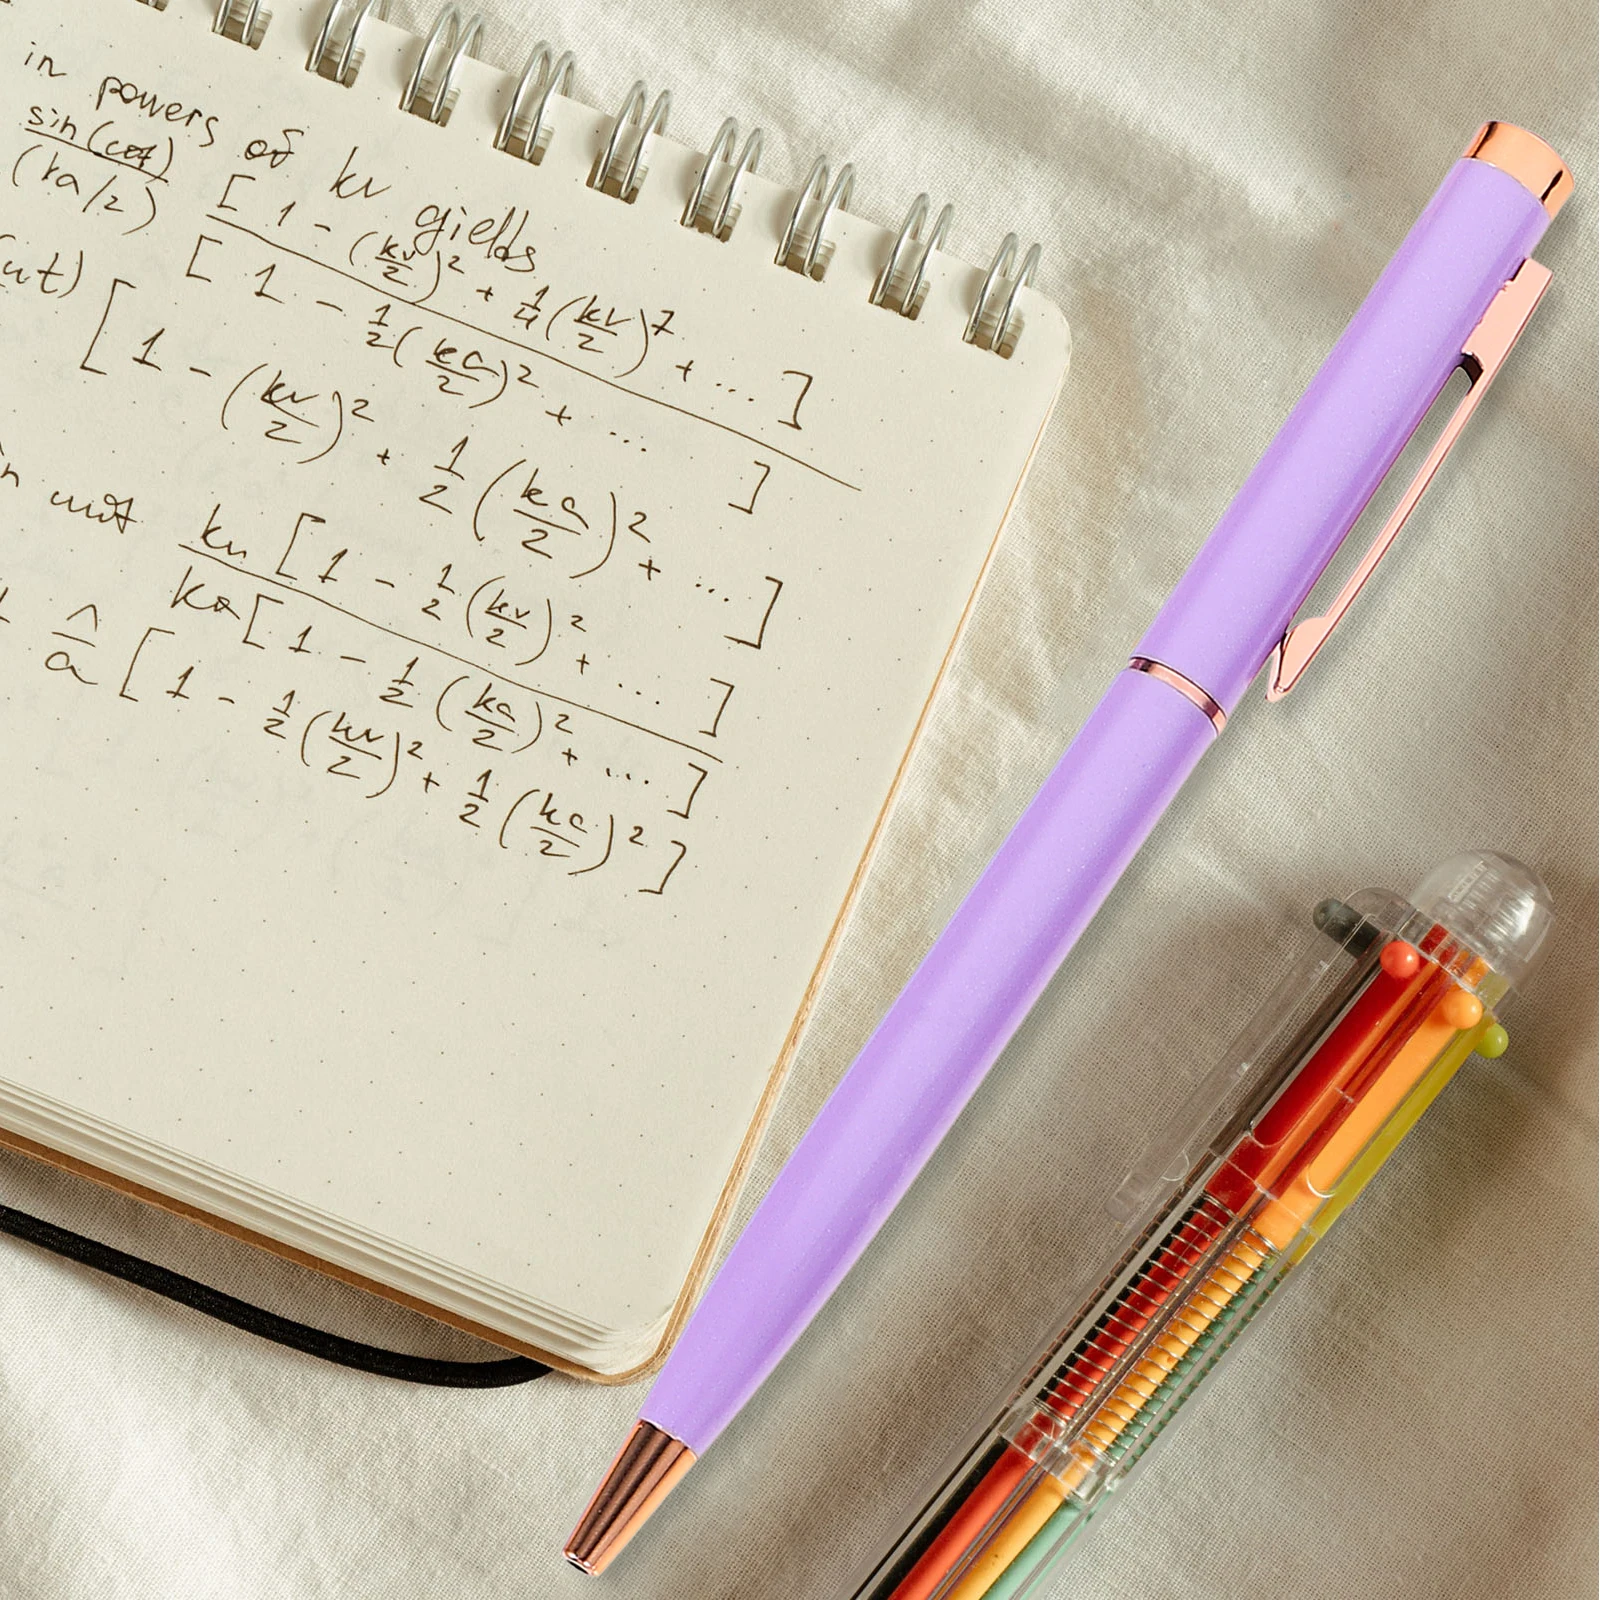 in powers of kr gields
sin(ωt) / (ka/2) [1 - (kr/2)² + 1/4(kr/2)⁷ + ...] / [1 - 1/2(ka/2)² + ...]
ωt) [1 - (kr/2)² + 1/2(ka/2)² + ...]
kr[1 - 1/2(kr/2)² + ...] / ka[1 - 1/2(ka/2)² + ...]
1/a [1 - 1/2(kr/2)² + 1/2(ka/2)²]